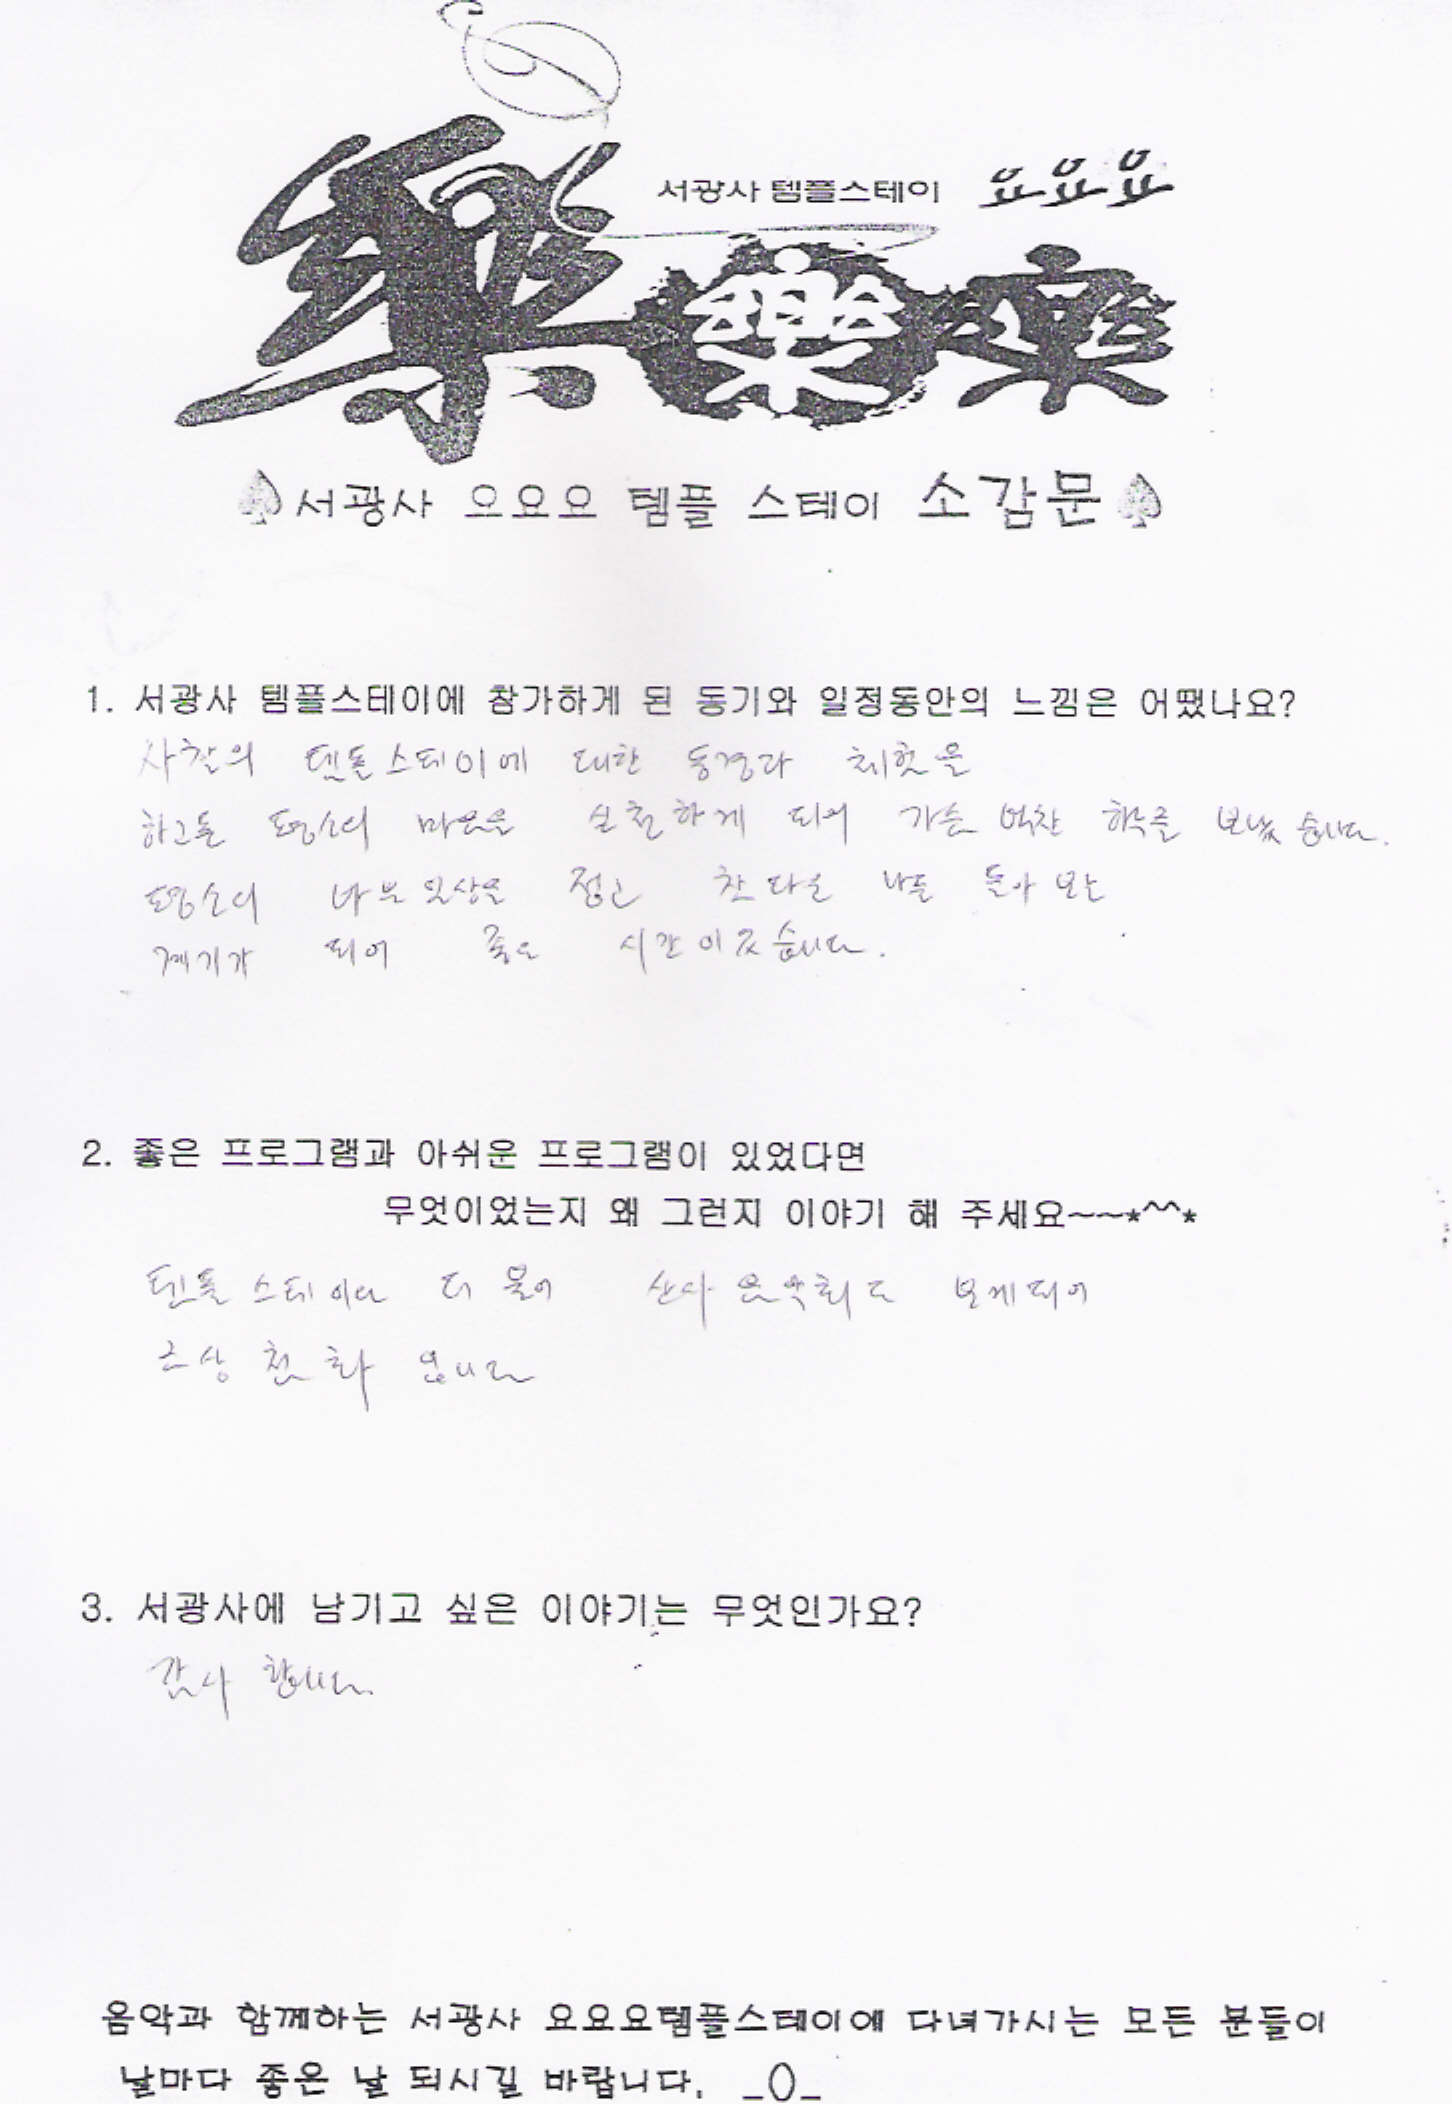 서광사 템플스테이 요요요
樂 樂 樂
서광사 요요요 템플 스테이 소감문
1. 서광사 템플스테이에 참가하게 된 동기와 일정동안의 느낌은 어땠나요?
사찰의 템플스테이에 대한 동경과 체험을
하고픈 평소의 마음을 실천하게 되어 가슴 벅찬 하루를 보냈습니다.
평소의 바쁜 일상을 접고 참다운 나를 돌아 보는
계기가 되어 좋은 시간이었습니다.
2. 좋은 프로그램과 아쉬운 프로그램이 있었다면
무엇이었는지 왜 그런지 이야기 해 주세요~~*^^*
템플스테이와 더불어 산사 음악회도 보게되어
금상첨화 입니다
3. 서광사에 남기고 싶은 이야기는 무엇인가요?
감사 합니다.
음악과 함께하는 서광사 요요요템플스테이에 다녀가시는 모든 분들이
날마다 좋은 날 되시길 바랍니다. _()_